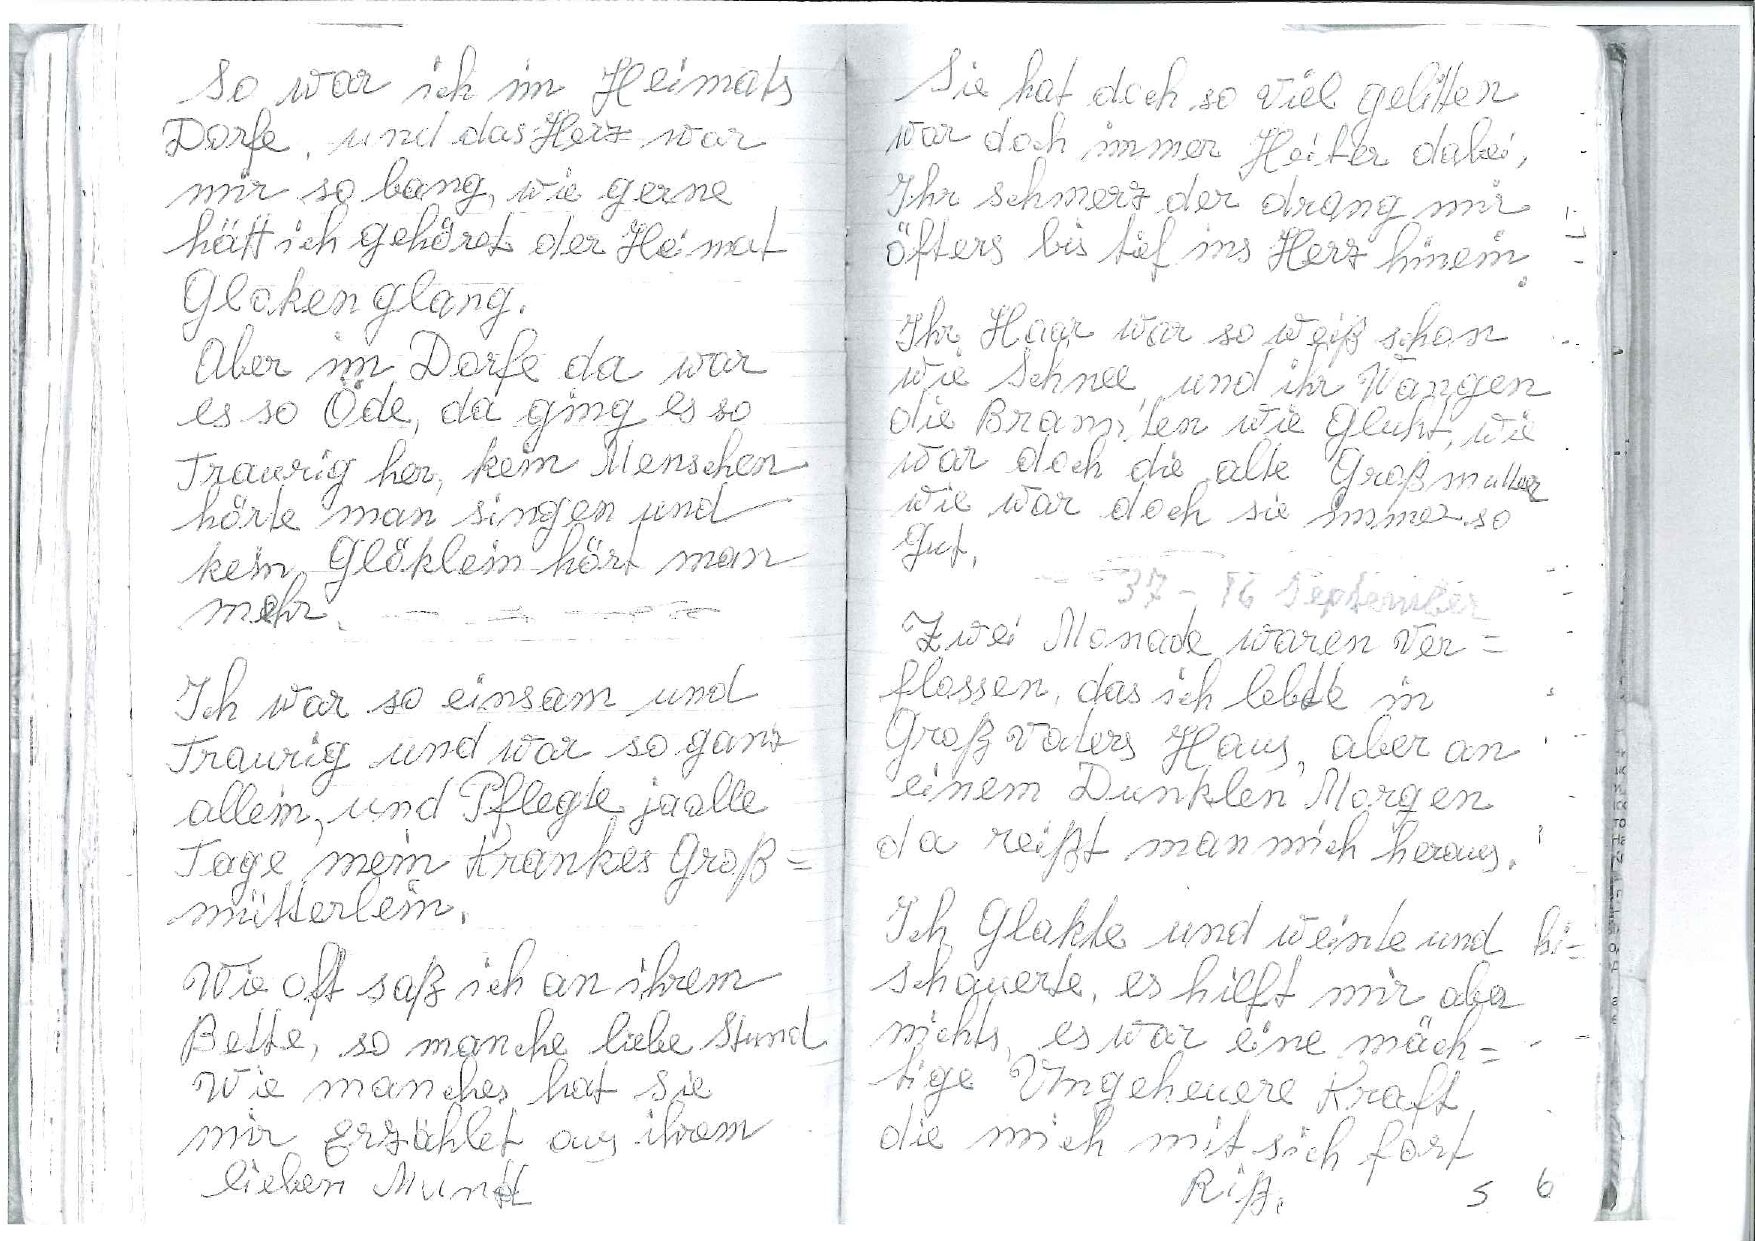 So war ich im Heimats
Dorfe, und das Herz war
mir so bang, wie gerne
hätt ich gehöret der Heimat
Glokenglang.
Aber im Dorfe da war
es so Öde, da ging es so
Traurig her, kein Menschen
hörte man singen und
kein Glöklein hört man
mehr.
Ich war so einsam und
Traurig und war so ganz
allein, und Pflegte ja alle
Tage mein Krankes Groß=
mütterlein.
Wie oft saß ich an ihrem
Bette, so manche liebe Stund
Wie manches hat sie
mir Erzählet aus ihrem
lieben Mund
Sie hat doch so viel gelitten
war doch immer Heiter dabei,
Ihr schmerz der drang mir
öfters bis tief ins Herz hinein.
Ihr Haar war so weiß schon
wie Schnee, und ihr Wangen
die Brannten wie Gluht, wie
war doch die alte Großmutter
wie war doch sie immer so
Gut.
37 - 16 September
Zwei Monade waren Ver=
flossen, das ich lebte in
Großvaters Haus, aber an
einem Dunklen Morgen
da reißt man mich heraus.
Ich Glakte und weinte und bi=
schauerte, es hilft mir aber
nichts, es war eine mäch=
tige Ungeheuere Kraft,
die mich mit sich fort
Riß.
5 6